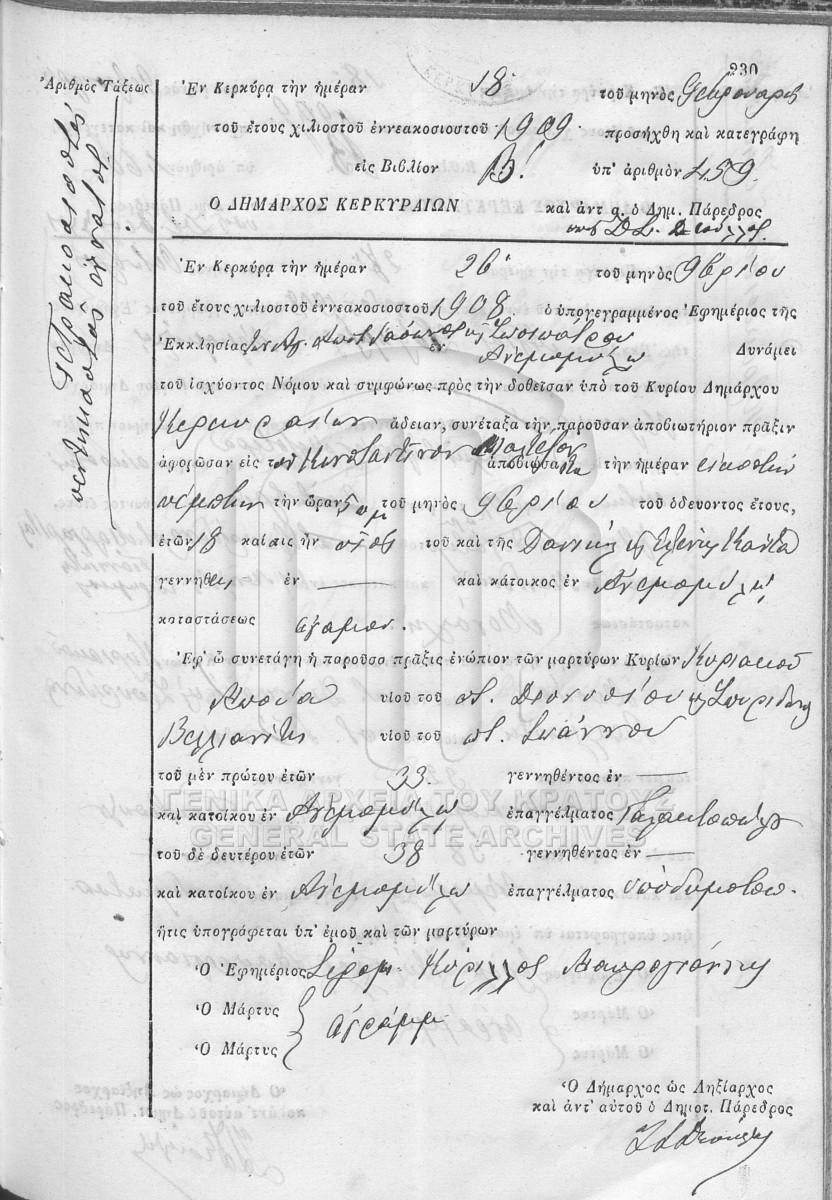 230
Ἀριθμὸς Τάξεως
Τετρακοσιοστὸς
πεντηκοστὸς ἔννατος
Ἐν Κερκύρᾳ τὴν ἡμέραν 18 τοῦ μηνὸς
τοῦ ἔτους χιλιοστοῦ ἐννεακοσιοστοῦ 1909 προσήχθη καὶ κατεγράφη
εἰς Βιβλίον Β! ὑπ' ἀριθμὸν 459.
Ο ΔΗΜΑΡΧΟΣ ΚΕΡΚΥΡΑΙΩΝ καὶ ἀντ' α. ὁ Δημ. Πάρεδρος
Ἐν Κερκύρᾳ τὴν ἡμέραν 26 τοῦ μηνὸς 9βρίου
τοῦ ἔτους χιλιοστοῦ ἐννεακοσιοστοῦ 1908 ὁ ὑπογεγραμμένος Ἐφημέριος τῆς
Ἐκκλησίας τῶν Ἁγ. Ἰάσωνος κ Σωσιπάτρου ἐν Ἀνεμομύλῳ Δυνάμει
τοῦ ἰσχύοντος Νόμου καὶ συμφώνως πρὸς τὴν δοθεῖσαν ὑπὸ τοῦ Κυρίου Δημάρχου
Κερκυραίων ἄδειαν, συνέταξα τὴν παροῦσαν ἀποβιωτήριον πρᾶξιν
ἀφορῶσαν εἰς τὸν Κωνσταντῖνον ἀποβιώσαντα τὴν ἡμέραν εἰκοστὴν
πέμπτην τὴν ὥραν 5 μμ τοῦ μηνὸς 9βρίου τοῦ ὁδεύοντος ἔτους,
ἐτῶν 18 καὶ εἰς ἦν υἱὸς τοῦ καὶ τῆς Δανιὴλ κ Ἑλένης
γεννηθεὶς ἐν — καὶ κάτοικος ἐν Ἀνεμομύλῳ
καταστάσεως ἀγάμου.
Ἐφ' ᾧ συνετάγη ἡ παροῦσα πρᾶξις ἐνώπιον τῶν μαρτύρων Κυρίων Κυριακοῦ
υἱοῦ τοῦ π. Διονυσίου κ Σπυρίδων
Βελλιανίτη υἱοῦ τοῦ π. Ἰωάννου
τοῦ μὲν πρώτου ἐτῶν 33. γεννηθέντος ἐν —
καὶ κατοίκου ἐν Ἀνεμομύλῳ ἐπαγγέλματος Γαλακτοπώλου
τοῦ δὲ δευτέρου ἐτῶν 38 γεννηθέντος ἐν —
καὶ κατοίκου ἐν Ἀνεμομύλῳ ἐπαγγέλματος ὑποδηματοπ.
ἥτις ὑπογράφεται ὑπ' ἐμοῦ καὶ τῶν μαρτύρων
Ὁ Ἐφημέριος Ἱερομ. Κύριλλος Μαυρογιάννης
Ὁ Μάρτυς
Ὁ Μάρτυς
ἀγράμμ.
Ὁ Δήμαρχος ὡς Ληξίαρχος
καὶ ἀντ' αὐτοῦ ὁ Δημοτ. Πάρεδρος
ΓΕΝΙΚΑ ΑΡΧΕΙΑ ΤΟΥ ΚΡΑΤΟΥΣ
GENERAL STATE ARCHIVES